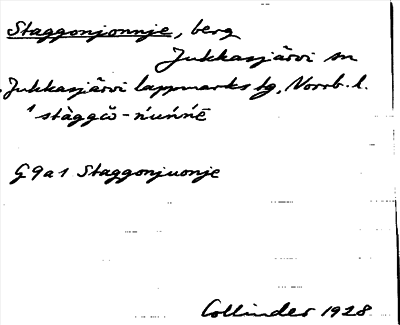 Staggonjonnje, berg
Jukkasjärvi sn
Jukkasjärvi lappmarks tg, Norrb. l.
¹ stàggŏ-ńuńńē
G9a1 Staggonjuonje
Collinder 1928